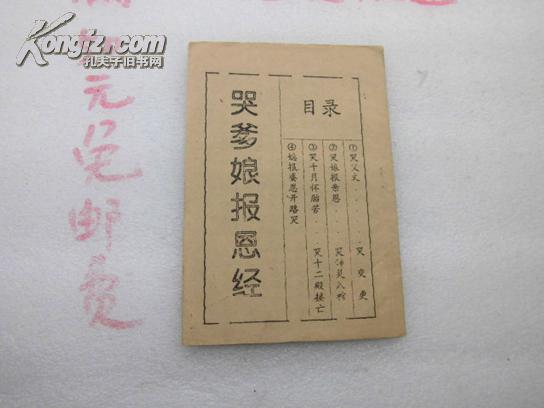 Kongfz.com
孔夫子旧书网
元免邮费
哭爹娘报恩经
目录
①哭父文......哭交更
②哭娘报亲恩...哭
③哭十月怀胎苦..哭十二殿接亡
④媳报婆恩开路哭